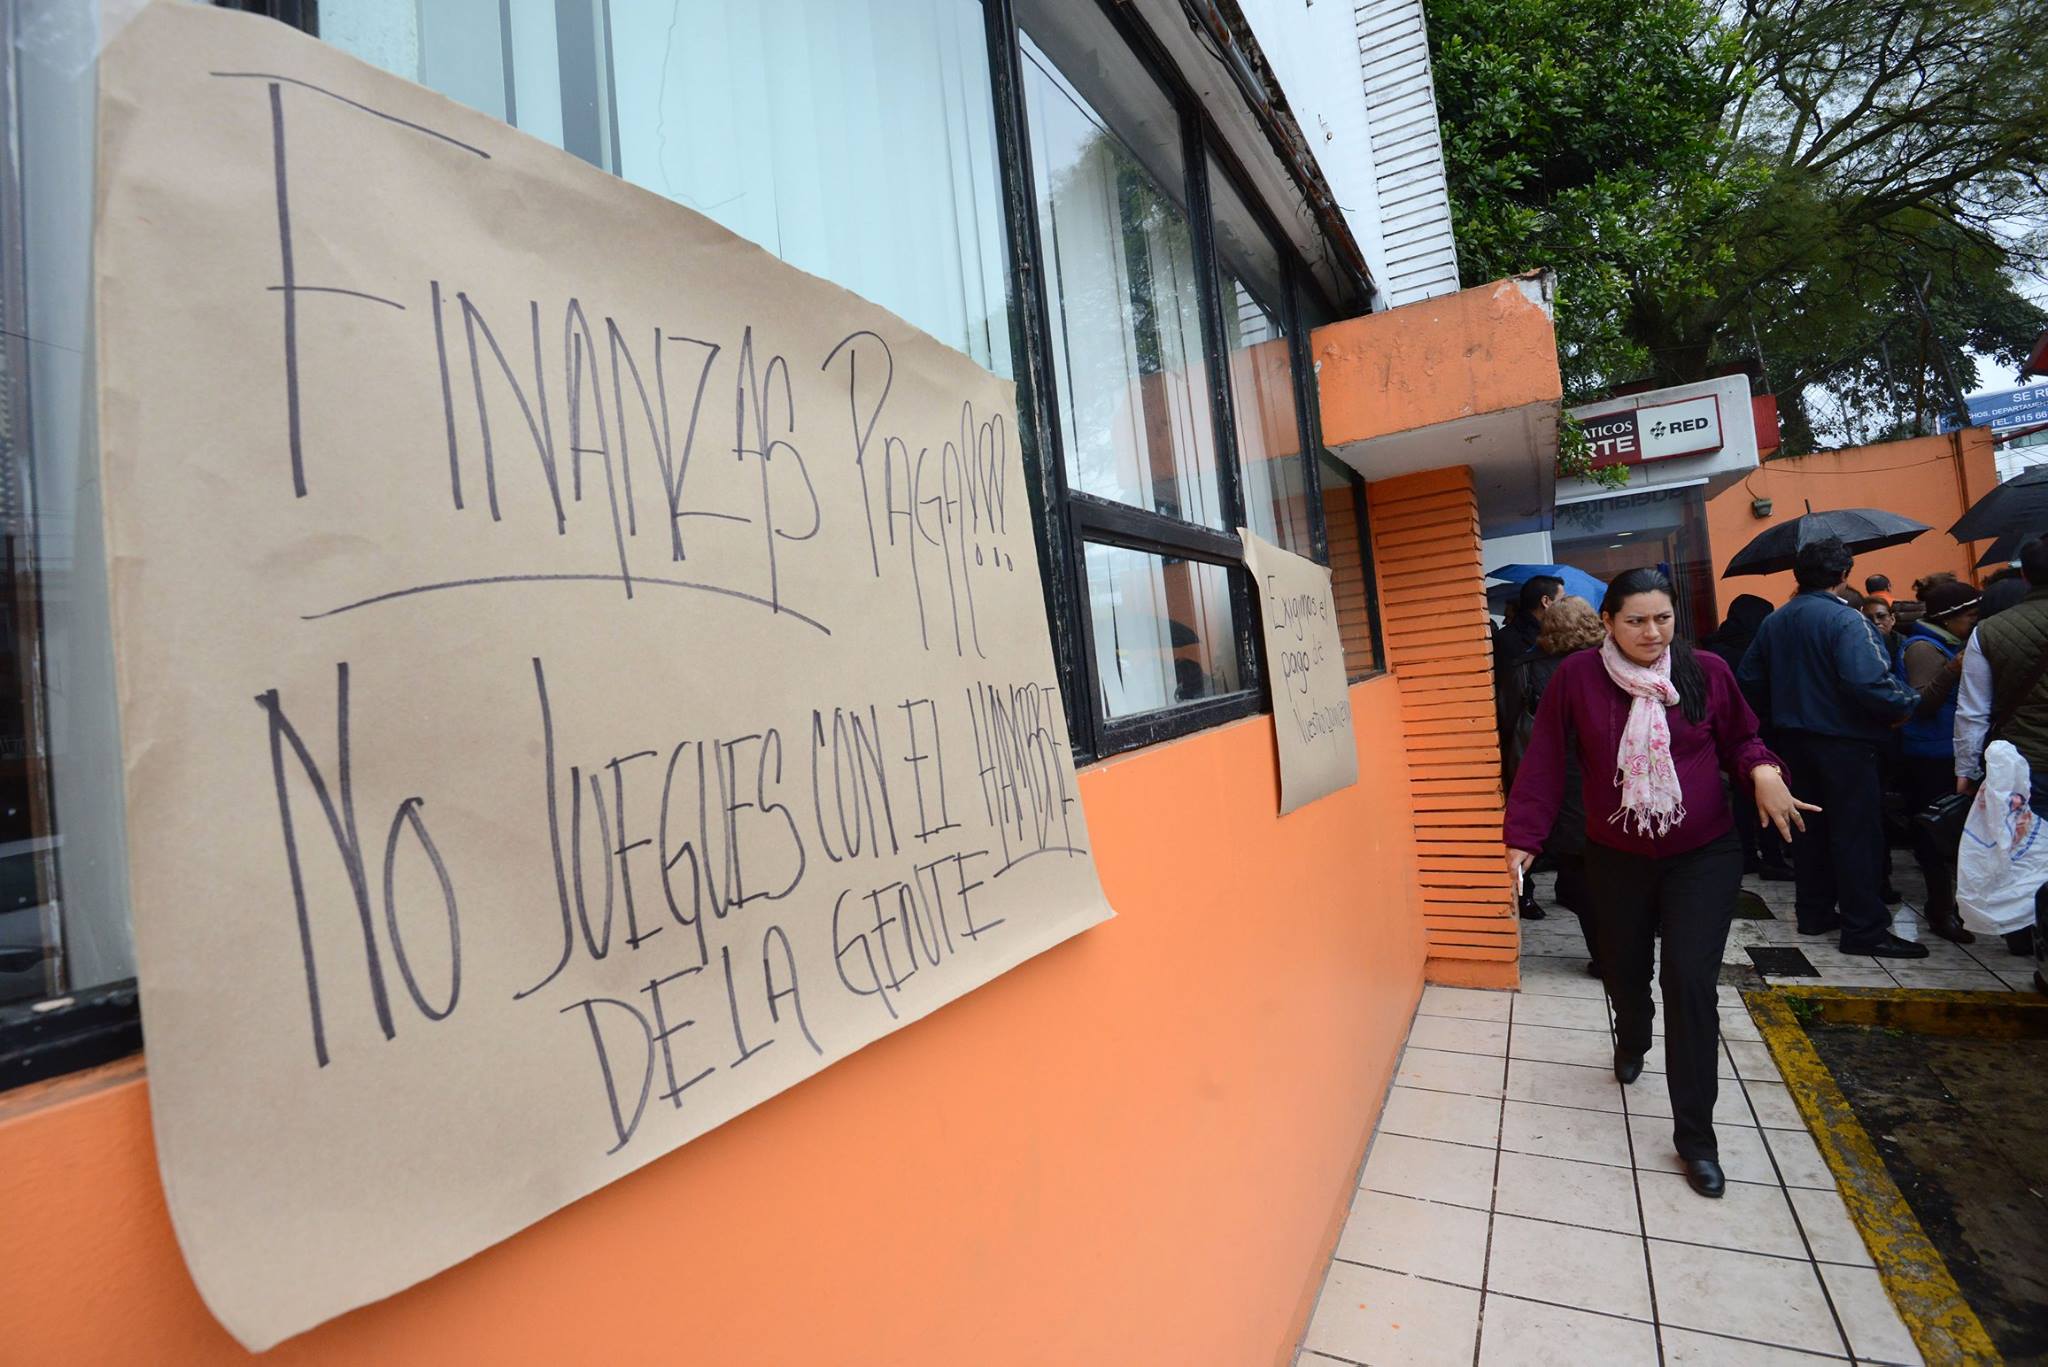 FINANZAS PAGA!!!
NO JUEGUES CON EL HAMBRE
DE LA GENTE
Exigimos el
pago de
Nuestro
ATICOS
RTE
RED
SE RE
HOS, DEPARTAME
TEL. 815 66